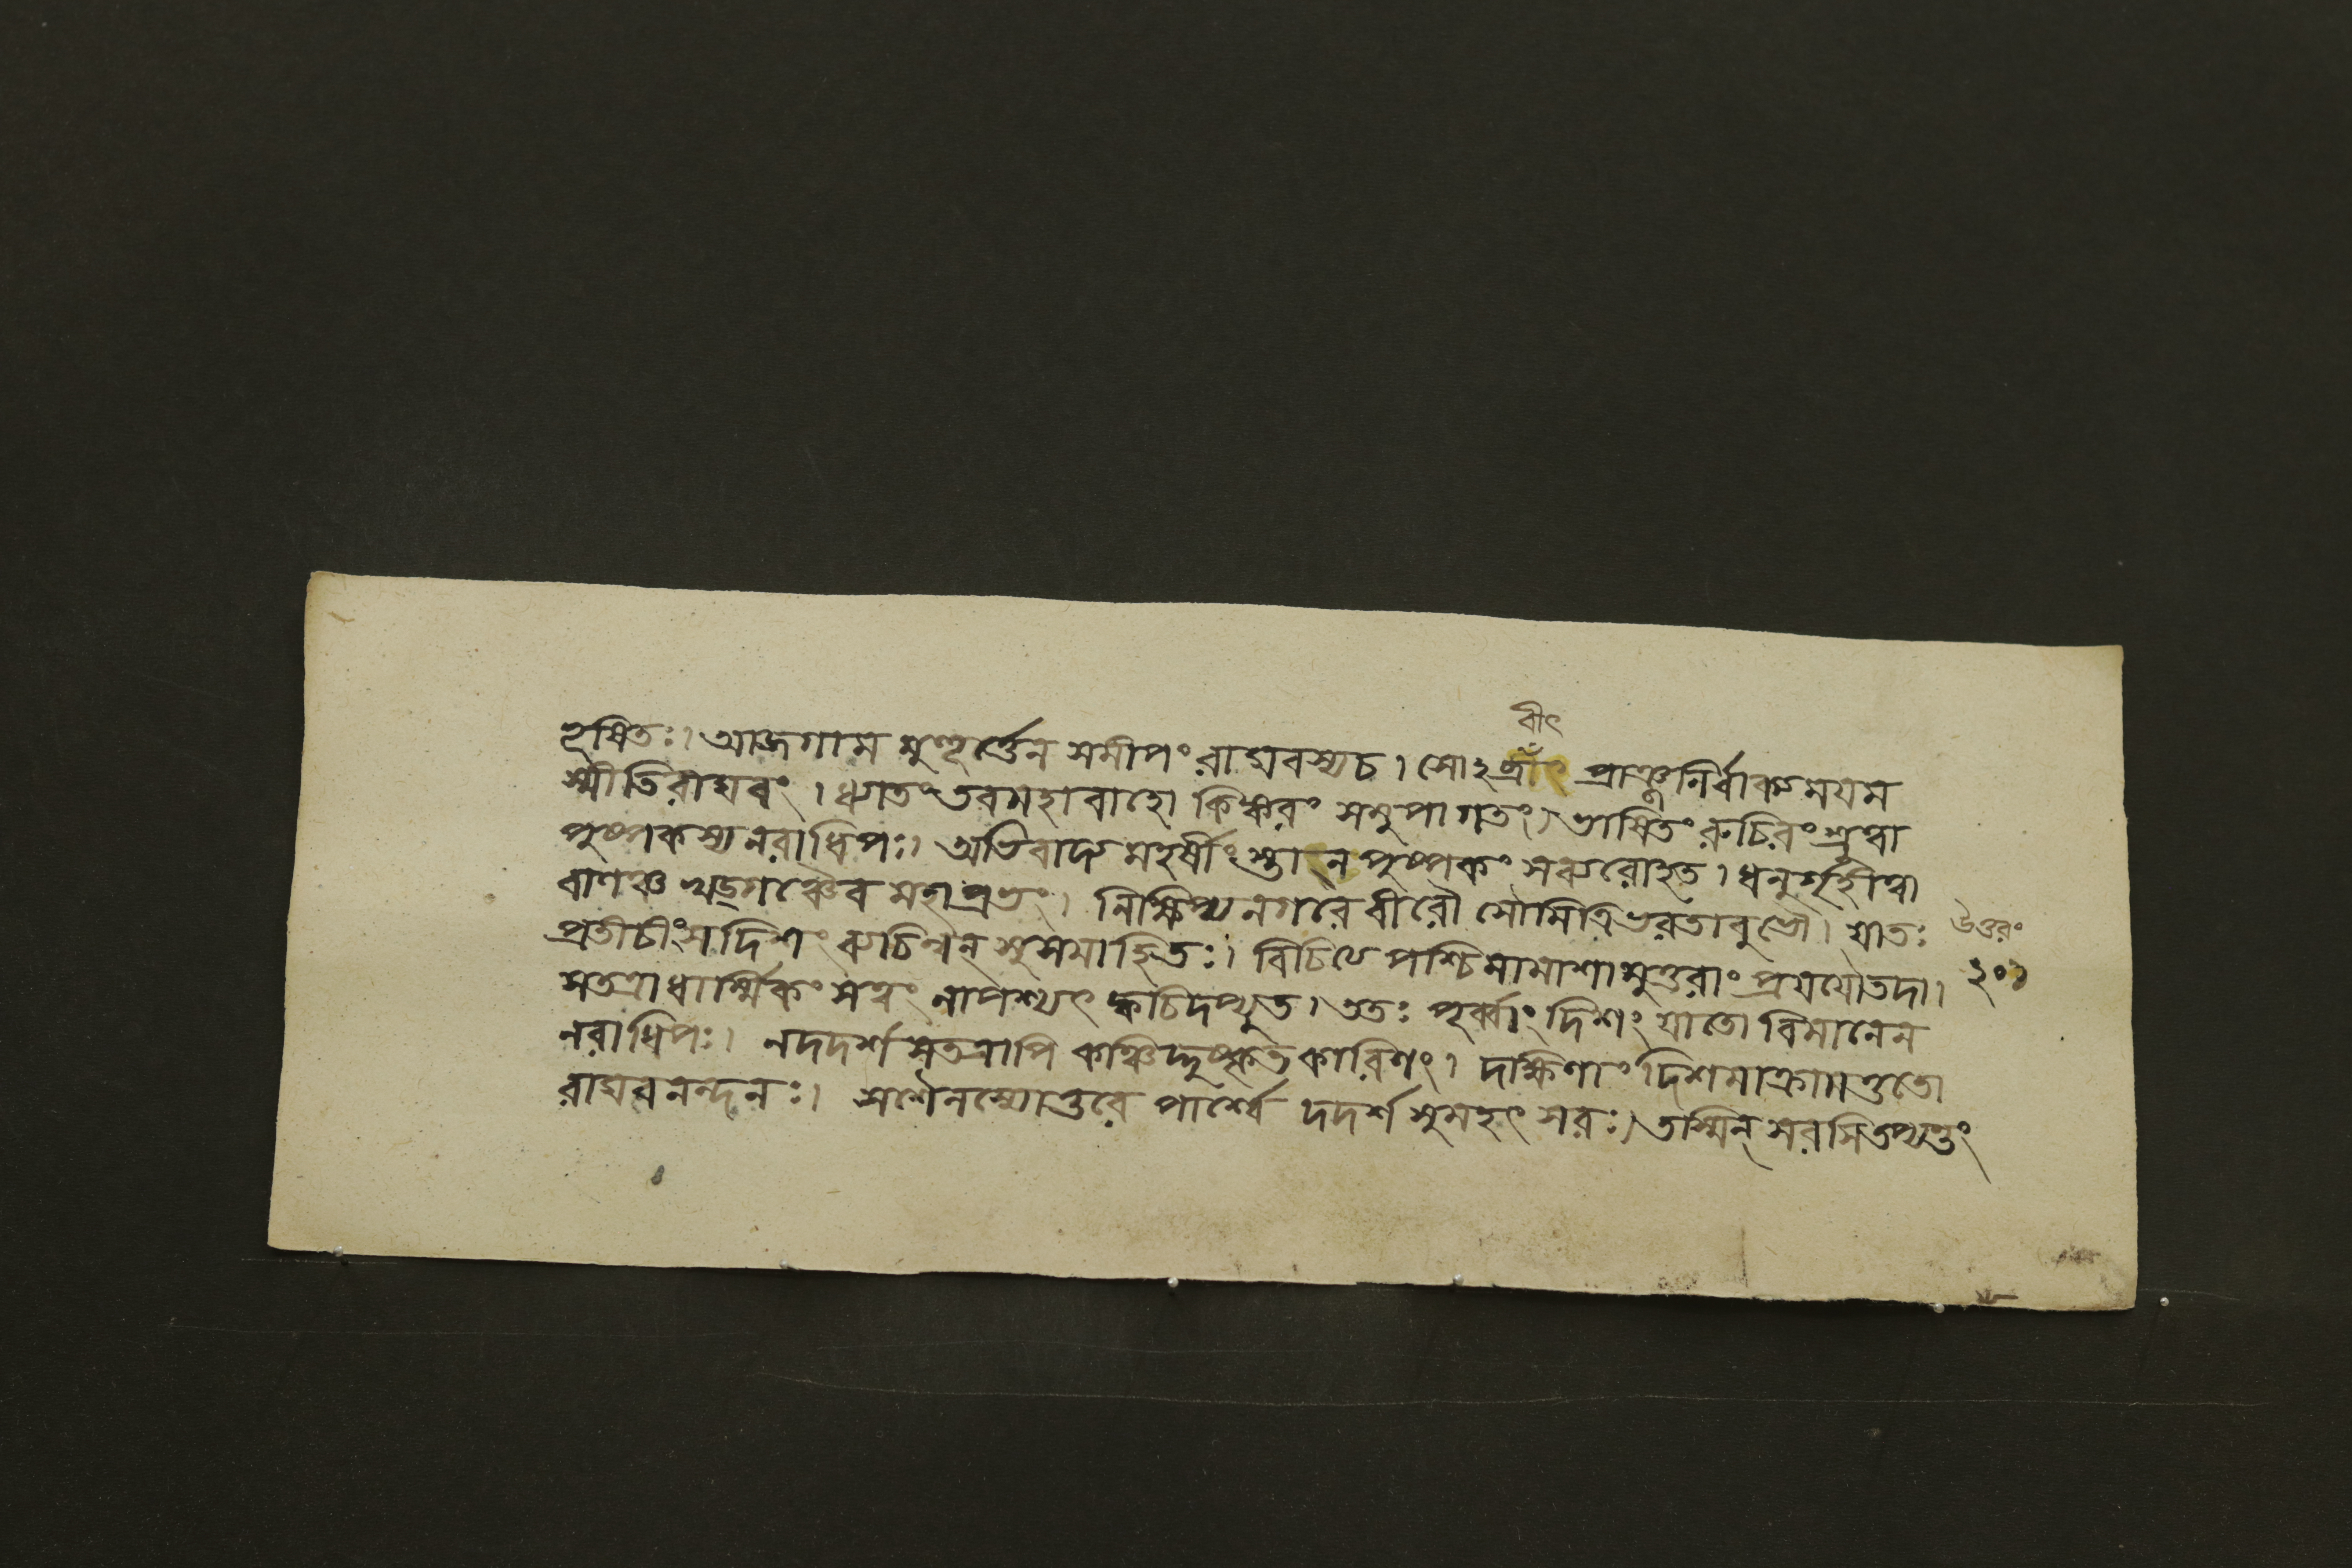 বীৎ
হৃষিতঃ। আজগাম মুহূর্ত্তেন সমীপং রাঘবস্যচ। সোঽব্রবীৎ প্রাঞ্জলির্বাক্যময়ম
স্মীতিরাঘবং। ধগতংতবমহাবাহো কিঙ্করং সমুপাগতং। ভাষিতং রুচিরং শ্রুত্বা
পুষ্পকস্যনরাধিপঃ। অভিবাদ্য মহর্ষীংস্তান্ পুষ্পকং সরুরোহত। ধনুর্গৃহীত্বা
বাণঞ্চ খড়্গঞ্চৈব মহাপ্রভং। নিক্ষিপ্যনগরে বীরৌ সৌমিত্রিভরতাবুভৌ। যাতঃ
উত্তরং
প্রতীচীংসদিশং রুচিন্বন্ সুসমাহিতঃ। বিচিত্যে পশ্চিমামাশামুত্তরাং প্রযযৌতদা।
২০১
সতত্রাধার্ম্মিকং সত্বং নাপশ্যৎ ক্বচিদপ্যুত। ততঃ পূর্ব্বাং দিশং যাতো বিমানেন
নরাধিপঃ। নদদর্শ সতত্রাপি কঞ্চিদ্দুষ্কৃতকারিণং। দক্ষিণাং দিশমাক্রামত্ততো
রাঘবনন্দনঃ। সশৈলস্যোত্তরে পার্শ্বে দদর্শ সুমহৎ সরঃ। তস্মিন্ সরসিতপ্যন্তং